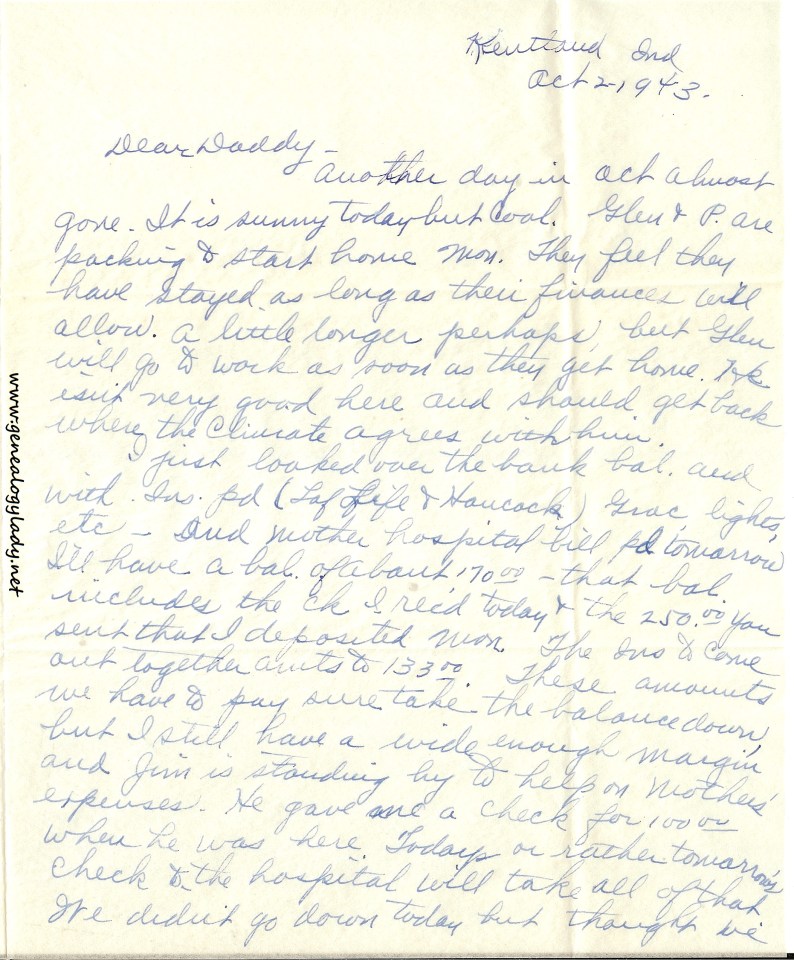 Kentland Ind
Oct 2-1943.
Dear Daddy -
Another day in Oct almost
gone. It is sunny today but cool. Glen & P. are
packing to start home Mon. They feel they
have stayed as long as their finances will
allow. A little longer perhaps, but Glen
will go to work as soon as they get home. He
isn't very good here and should get back
where the climate agrees with him.
I just looked over the bank bal. and
with Ins. pd (Laf Life & Hancock) Groc, lights,
etc - And mother hospital bill pd tomorrow
I'll have a bal. of about 170 00 - that bal.
includes the ck I rec'd today & the 250.00 you
sent that I deposited Mon. The Ins to come
out together amts to 133 00. These amounts
we have to pay sure take the balance down,
but I still have a wide enough margin
and Jim is standing by to help on Mother's
expenses. He gave me a check for 100 00
when he was here. Todays or rather tomorrow's
check to the hospital will take all of that.
We didn't go down today but thought we
www.genealogylady.net